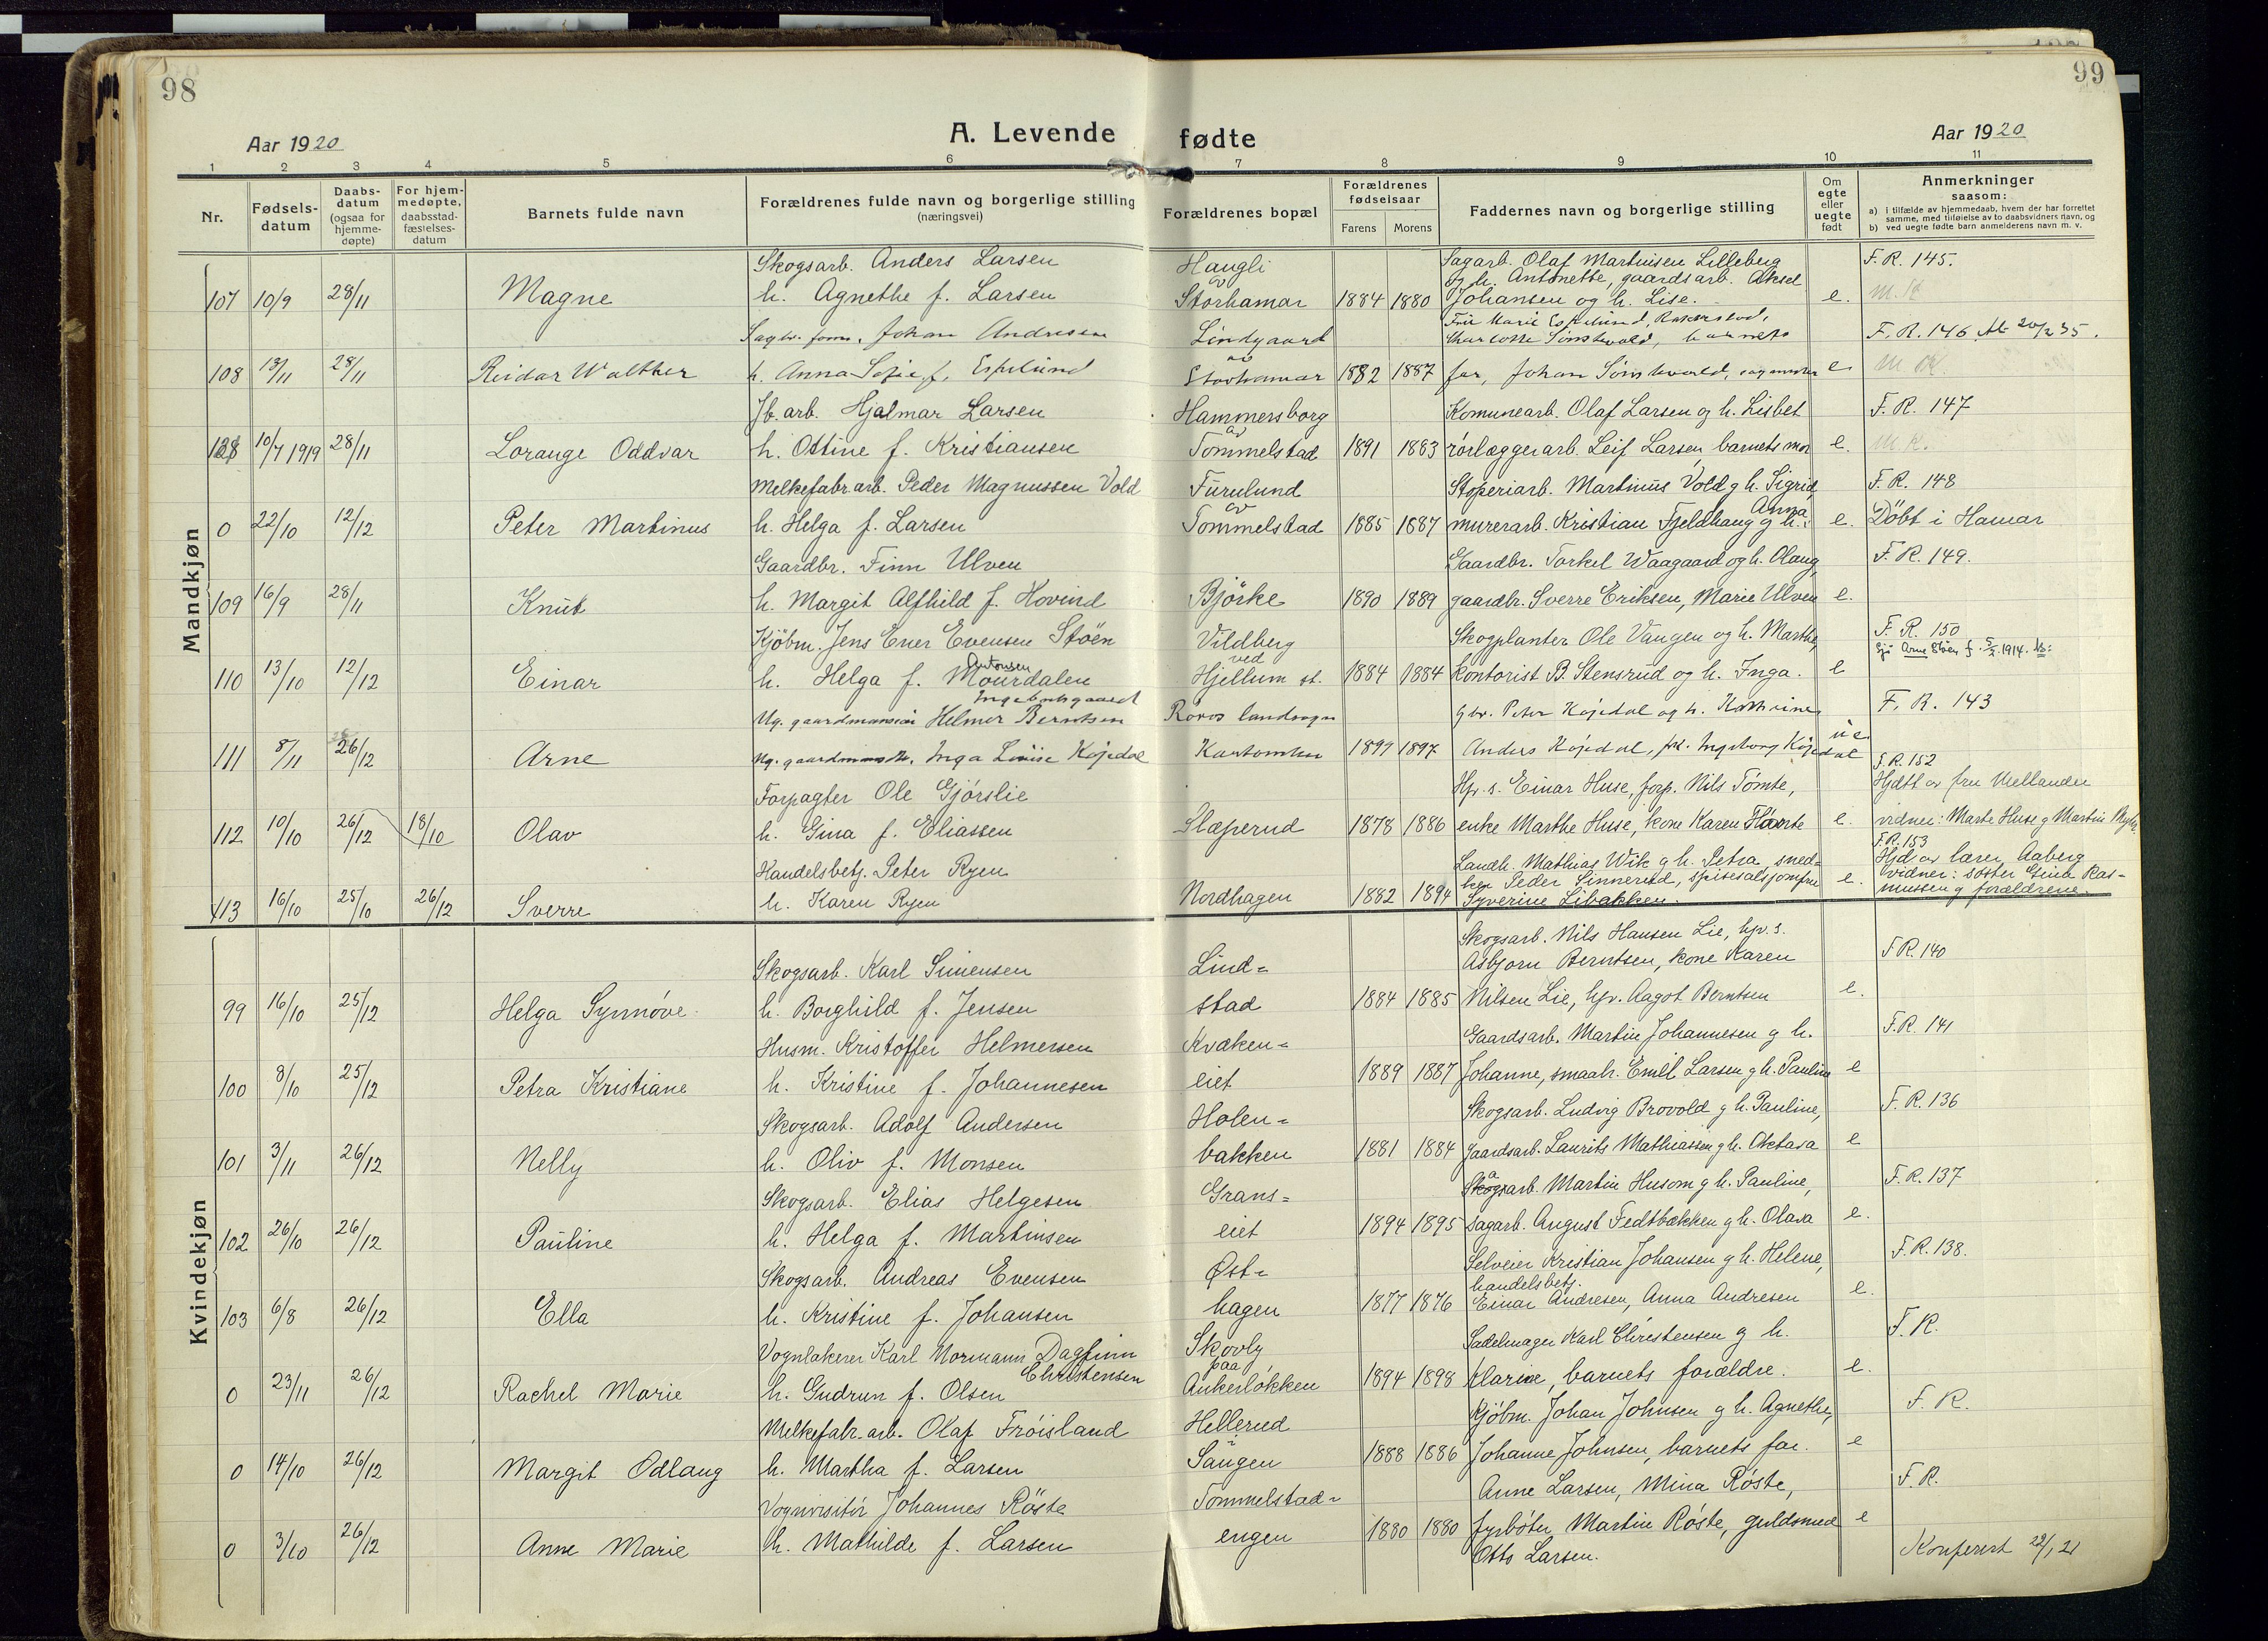 98
99
Aar 1920
A. Levende fødte
Aar 1920
1 2 3 4 5 6 7 8 9 10 11
Nr.
Fødsels-datum
Daabs-datum (ogsaa for hjemme-døpte)
For hjem-medøpte, daabsstad-fæstelses-datum
Barnets fulde navn
Forældrenes fulde navn og borgerlige stilling (næringsvei)
Forældrenes bopæl
Forældrenes fødselsaar
Farens Morens
Faddernes navn og borgerlige stilling
Om egte eller uegte født
Anmerkninger saasom:
a) i tilfælde av hjemmedaab, hvem der har forrettet samme, med tilføielse av to daabsvidners navn, og
b) ved uegte fødte barn anmelderens navn m. v.
Mandkjøn
Skogsarb. Anders Larsen Haugli Sagarb. Olaf Martinsen Lilleberg F. R. 145.
av og h. Antonette, gaardsarb. Aksel
107 10/9 28/11 Magne h. Agnethe f. Larsen Storhamar 1884 1880 Johansen og h. Lise. e. m. k
Johan Andresen Lindgaard Marie Espelund, F. R. 146
av
108 13/11 28/11 Reidar Walther h. Anna Sofie f. Espelund Storhamar 1882 1887 far, Johan e m k.
Jb. arb. Hjalmar Larsen Hammersborg Komunearb. Olaf Larsen og h. Lisbet F. R. 147
av
128 10/7 1919 28/11 Lorange Oddvar h. Ottine f. Kristiansen Tommelstad 1891 1883 rørlæggerarb. Leif Larsen barnets mor e. m k.
Melkefabr.arb. Peder Magnussen Vold Furulund Støperiarb. Martinus Vold g h. Sigrid, F. R. 148
av Anna
0 22/10 12/12 Peter Martinus h. Helga f. Larsen Tommelstad 1885 1887 murerarb. Kristian Fjeldhaug g h. e. Döbt i Hamar
Gaardbr. Finn Ulven Gaardbr. Torkel Waagaard og h. Olaug, F. R. 149.
109 16/9 28/11 Knut h. Margit Alfhild f. Hovind Bjørke 1890 1889 gaardbr. Sverre Eriksen, Marie Ulven e.
Kjöbm. Jens Ener Evensen Stöen Vildberg Skogplanter Ole Vangen og h. Marthe, F. R. 150
Antonsen ved Arne Stöen f. 5/2.1914.
110 13/10 12/12 Einar h. Helga f. Mourdalen Hjellum st. 1884 1884 kontorist B. Stensrud og h. Inga. e
Ug. gaardmandssøn Helmer Berntsen Røros landsogn Gbr. Peter Kojedal og h. Kathrine, F. R. 143
111 8/11 26/12 Arne Ug. gaardmandsdt. Inga Louise Kojedal 1899 1897 Anders Kojedal, frk. Ingeborg Kojedal u e
F. R. 152
Forpagter Ole Gjörslie Hpr. s. Einar Huse, forp. Nils Tömte, Hjdt av fru Mellander
112 10/10 26/12 18/10 Olav h. Gina f. Eliassen Slæperud 1878 1886 enke Marthe Huse, kone Karen e. vidner: Marte Huse g Martin
F. R. 153
Handelsbetj. Peter Ryen Landh. Mathias Wik g h. Petra, sned- Hjd av lærer Aaberg
ker Peder Sinnerud, spisesalsjomfru e. vidner: søster Gina Ras-
113 16/10 25/10 26/12 Sverre h. Karen Ryen Nordhagen 1882 1894 Syverine Libakken. mussen g forældrene.
Kvindekjøn
Skogsarb. Nils Hansen Lie, hpr. s.
Skogsarb. Karl Simensen Lind= Asbjørn Berntsen, kone Karen F. R. 140
99 16/10 25/12 Helga Synnøve h. Borghild f. Jensen stad 1884 1885 Nilsen Lie, hpr. Aagot Berntsen e.
Husm. Kristoffer Helmersen Kvæken= Gaardsarb. Martin Johannesen g h. F. R. 141
100 8/10 25/12 Petra Kristiane h. Kristine f. Johannesen eiet 1889 1887 Johanne, smaabr. Emil Larsen g h. Pauline e
Skogsarb. Adolf Andersen Holen= Skogsarb. Ludvig Brovold g h. Pauline, F. R. 136
101 3/11 26/12 Nelly h. Oliv f. Monsen bakken 1881 1884 gaardsarb. Laurits Mathiassen g h. Oktava e
Skogsarb. Elias Helgesen Grans= Skogsarb. Martin Husom g h. Pauline, F. R. 137
102 26/10 26/12 Pauline h. Helga f. Martinsen eiet 1894 1895 sagarb. August Fedtbækken g h. Olava e.
Skogsarb. Andreas Evensen Øst= Selveier Kristian Johansen g h. Helene, F. R. 138.
handelsbetj.
103 6/8 26/12 Ella h. Kristine f. Johansen hagen 1877 1876 Einar Andresen, Anna Andresen e.
Vognlakerer Karl Normann Dagfinn Skovly Sadelmager Karl Christensen g h. F. R.
Christensen paa
0 23/11 26/12 Rachel Marie h. Gudrun f. Olsen Ankerløkken 1894 1898 Klarine, barnets forældre. e.
Melkefabr. arb. Olaf Frøisland Hellerud Kjöbm. Johan Johnsen g h. Agnethe, F. R.
0 14/10 26/12 Margit Odlaug h. Martha f. Larsen Sangen 1888 1886 Johanne Johnsen, barnets far. e
Vognvisitör Johannes Röste Tommelstad= Anne Larsen, Mina Røste, F. R.
0 3/10 26/12 Anne Marie h. Mathilde f. Larsen engen 1880 1880 fyrbøter Martin Røste, guldsmed e
Otto Larsen. Konferert 22/1 21